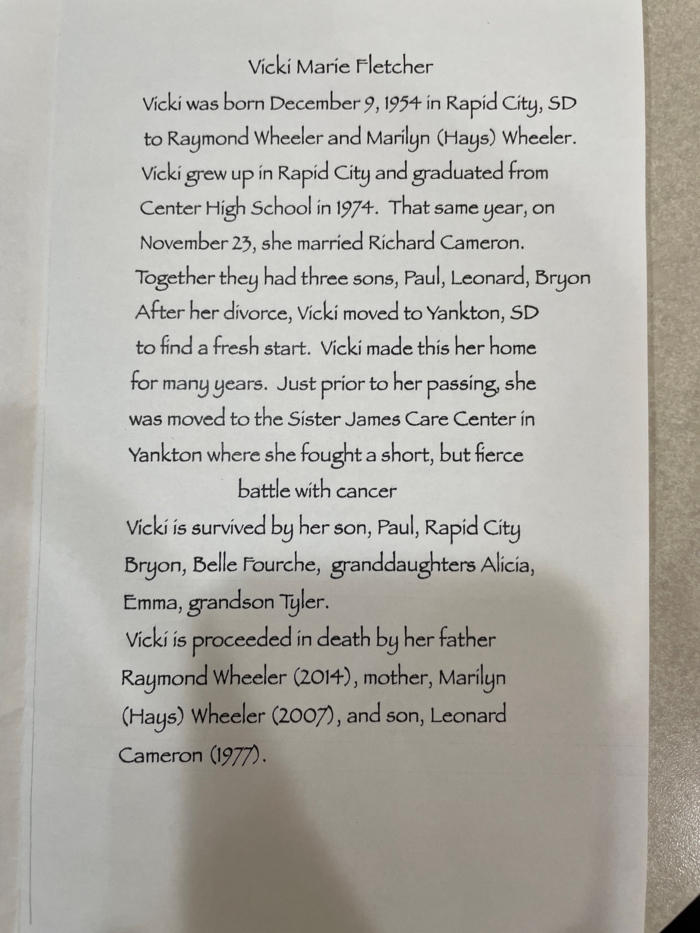 Vicki Marie Fletcher
Vicki was born December 9, 1954 in Rapid City, SD
to Raymond Wheeler and Marilyn (Hays) Wheeler.
Vicki grew up in Rapid City and graduated from
Center High School in 1974. That same year, on
November 23, she married Richard Cameron.
Together they had three sons, Paul, Leonard, Bryon
After her divorce, Vicki moved to Yankton, SD
to find a fresh start. Vicki made this her home
for many years. Just prior to her passing, she
was moved to the Sister James Care Center in
Yankton where she fought a short, but fierce
battle with cancer
Vicki is survived by her son, Paul, Rapid City
Bryon, Belle Fourche, granddaughters Alicia,
Emma, grandson Tyler.
Vicki is proceeded in death by her father
Raymond Wheeler (2014), mother, Marilyn
(Hays) Wheeler (2007), and son, Leonard
Cameron (1977).